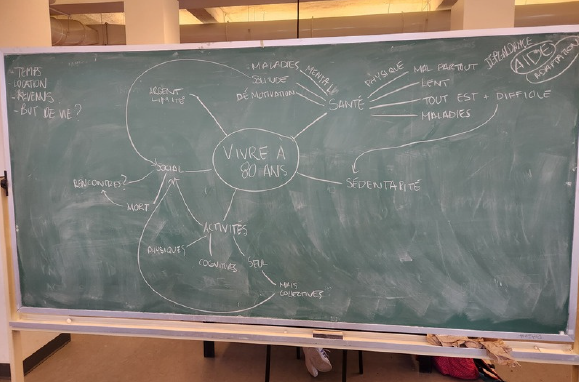 - TEMPS
- REVENUS
- BUT DE VIE?
ARGENT
LIMITÉ
MALADIES
MENTALE
DÉMOTIVATION
SANTÉ
PHYSIQUE
MAL PARTOUT
LENT
TOUT EST + DIFFICILE
MALADIES
DÉPENDANCE
AIDE
ADAPTATION
VIVRE À
80 ANS
SÉDENTARITÉ
SOCIAL
RENCONTRES?
MORT
ACTIVITÉS
PHYSIQUES
COGNITIVES
SEUL
MAIS
COLLECTIVES